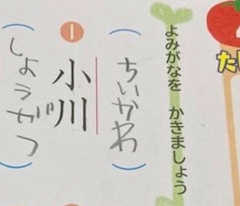 よみがなを かきましょう
(ちいかわ)
1
小川
(しょうがつ)